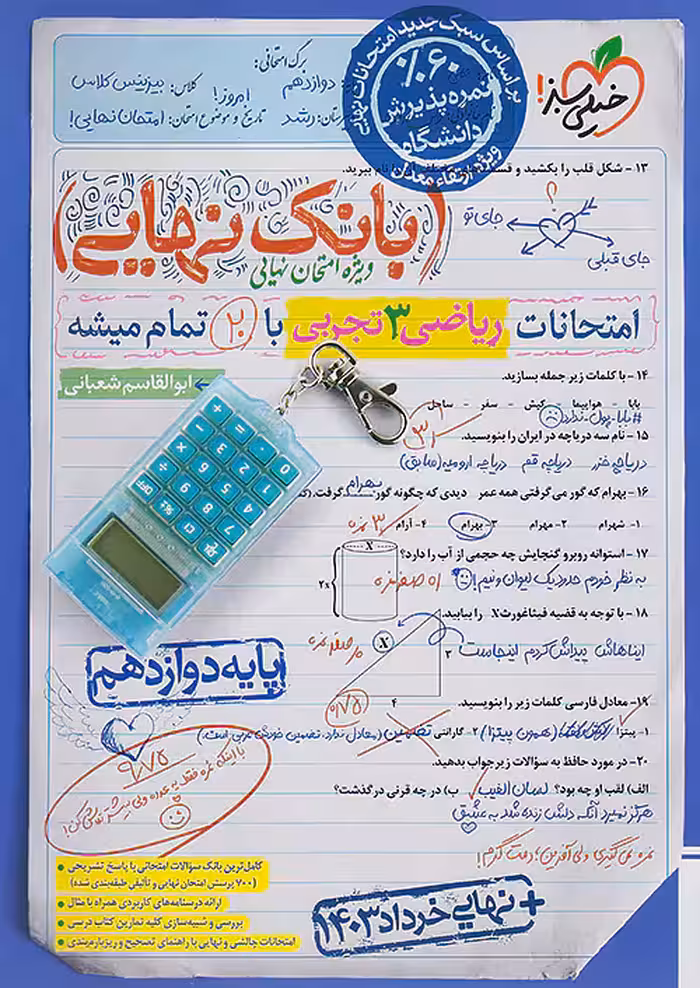 خیلی سبز!
بر اساس سبک جدید امتحانات نهایی
%۶۰
نمره پذیرش
دانشگاه
ویژه ارتقاء معدل
برگ امتحانی:
دوازدهم
کلاس: بیزینس کلاس
رشد
تاریخ و موضوع امتحان: امروز! امتحان نهایی!
۱۳ - شکل قلب را بکشید و نام ببرید.
؟
جای تو
جای قبلی
(بانک نهایی)
ویژه امتحان نهایی
امتحانات ریاضی ۳ تجربی با ۲۰ تمام میشه
ابوالقاسم شعبانی
۱۴ - با کلمات زیر جمله بسازید.
بابا - هواپیما - کیش - سفر - ساحل
#بابا-پول-ندارد
۱۵ - نام سه دریاچه در ایران را بنویسید.
دریاچه خزر دریاچه قم دریاچه ارومیه (سابق)
۱۶ - بهرام که گور می‌گرفتی همه عمر دیدی که چگونه گور بهرام گرفت.
۱- شهرام ۲- مهرام ۳- بهرام ۴- آرام
۱۷ - استوانه روبرو گنجایش چه حجمی از آب را دارد؟
به نظر خودم حدود یک لیوان و نیم!
X
2x
۱۸ - با توجه به قضیه فیثاغورث X را بیابید.
ایناهاش پیداش کردم اینجاست
X
۳
۴
۱۹- معادل فارسی کلمات زیر را بنویسید.
۱- پیتزا (همون پیتزا) ۲- گارانتی تضمین (معادل ندارد، تضمین خودش عربی است)
۲۰- در مورد حافظ به سؤالات زیر جواب بدهید.
الف) لقب او چه بود؟ لسان الغیب ب) در چه قرنی درگذشت؟
هرگز نمیرد آنکه دلش زنده شد به عشق
نمره نمی‌گیری ولی آفرین، دمت گرم!
+ - × ÷ = OFF
0 1 2 3 4 5 6 7 8 9
پایه دوازدهم
۹/۷۵
کامل‌ترین بانک سؤالات امتحانی با پاسخ تشریحی
(۷۰۰ پرسش امتحان نهایی و تألیفی طبقه‌بندی شده)
ارائه درسنامه‌های کاربردی همراه با مثال
بررسی و شبیه‌سازی کلیه تمارین کتاب درسی
امتحانات چالشی و نهایی با راهنمای تصحیح و ریزبارم‌بندی
+ نهایی خرداد ۱۴۰۳